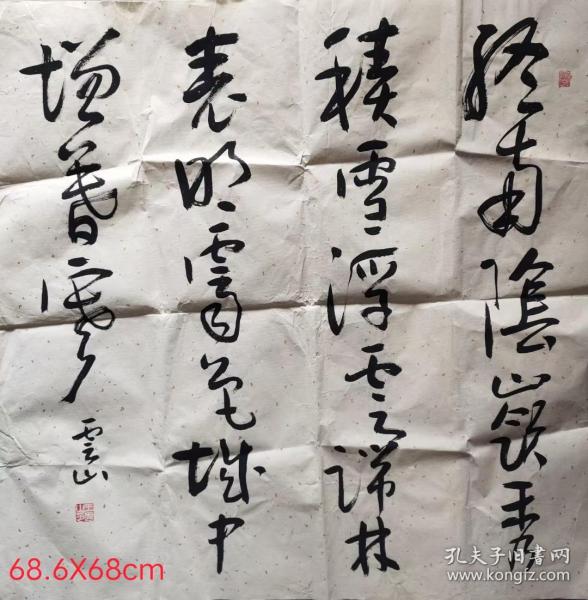 終南陰嶺秀
積雪浮雲端林
表明霽色城中
增暮寒
雲山
68.6X68cm
孔夫子旧书网
www.kongfz.com